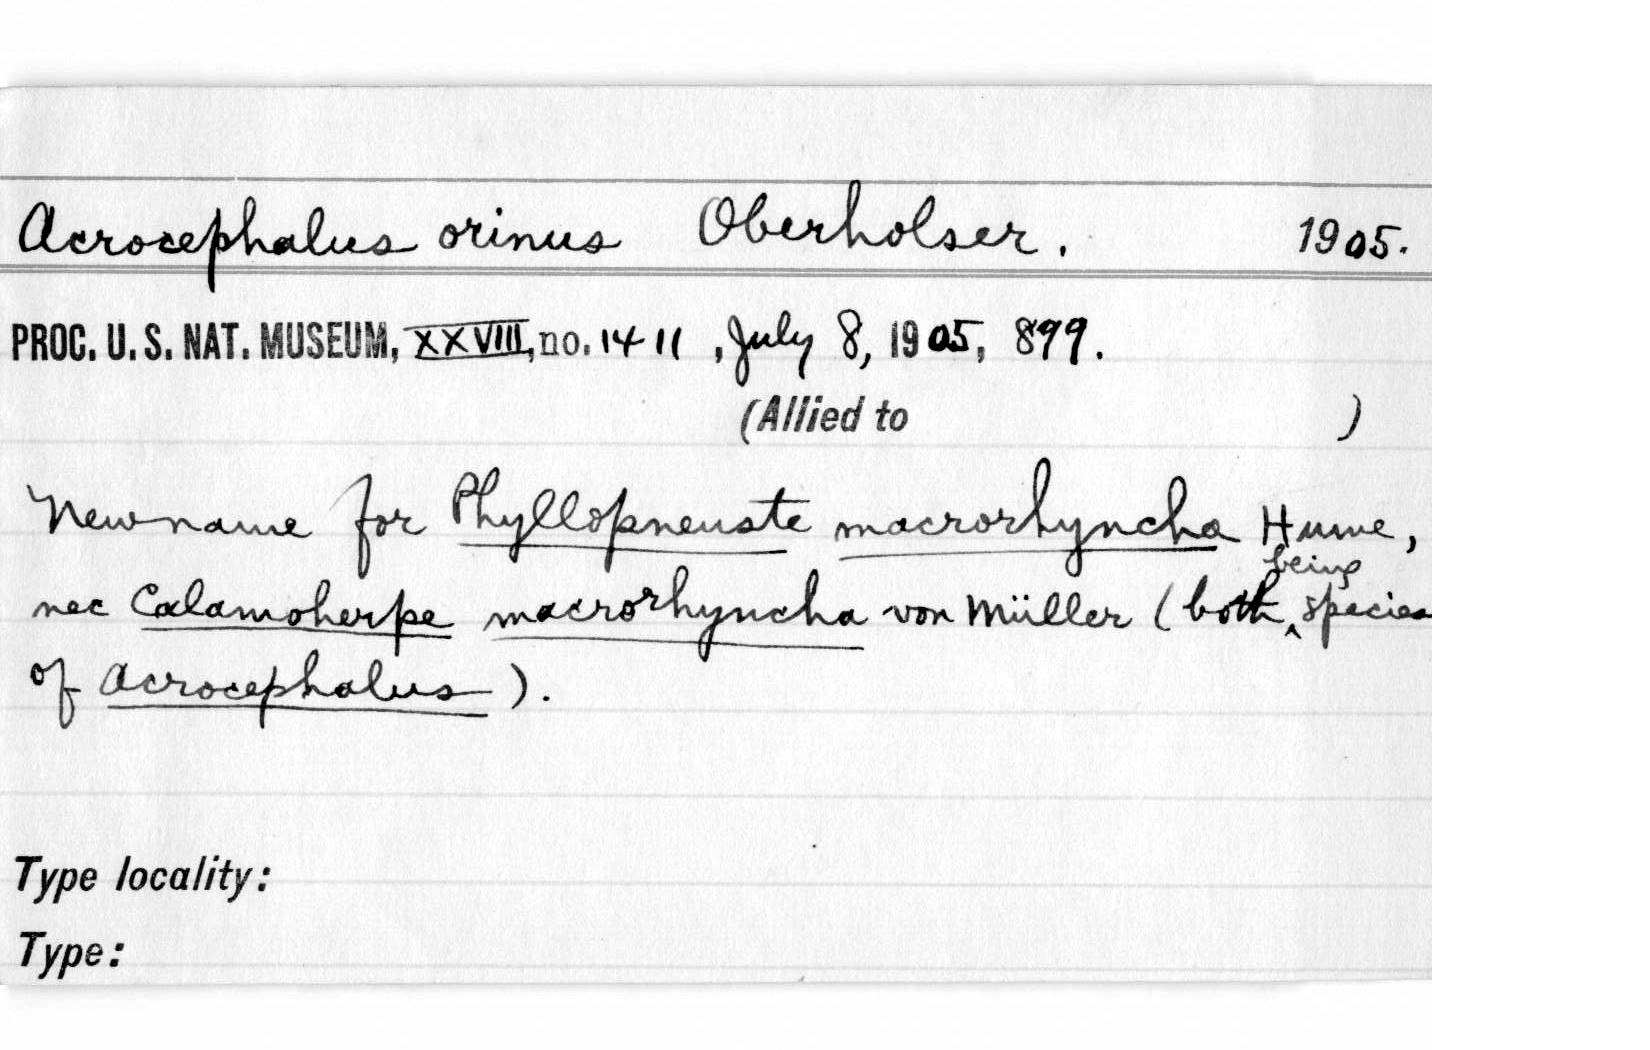 Acrocephalus orinus Oberholser. 1905.
PROC. U. S. NAT. MUSEUM, XXVIII, no. 1411, July 8, 1905, 899.
(Allied to )
New name for Phyllopneuste macrorhyncha Hume,
being
nec Calamoherpe macrorhyncha von Müller (both ‸ species
of Acrocephalus).
Type locality:
Type: